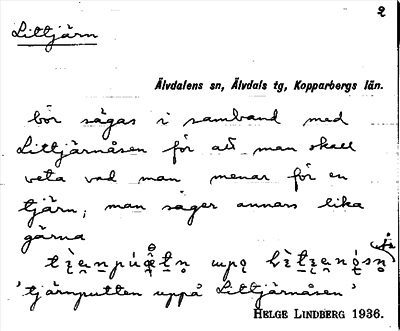 2
Littjärn
Älvdalens sn, Älvdals tg, Kopparbergs län.
bör sägas i samband med
Littjärnåsen för att man skall
veta vad man menar för en
tjärn; man säger annars lika
gärna
'tjärnputten uppå Littjärnåsen'
HELGE LINDBERG 1936.